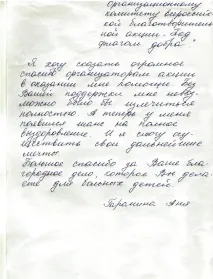 Организационному
комитету всероссий-
ской благотворитель-
ной акции „Под
флагом добра"
Я хочу сказать огромное
спасибо организаторам акции
в оказании мне помощи. Без
Вашей поддержки мне невоз-
можно было бы излечиться
полностью. А теперь у меня
появился шанс на полное
выздоровление. И я смогу осу-
ществить свои дальнейшие
мечты.
Большое спасибо за Ваше бла-
городное дело, которое Вы дела-
ете для больных детей.
Таранина Аня